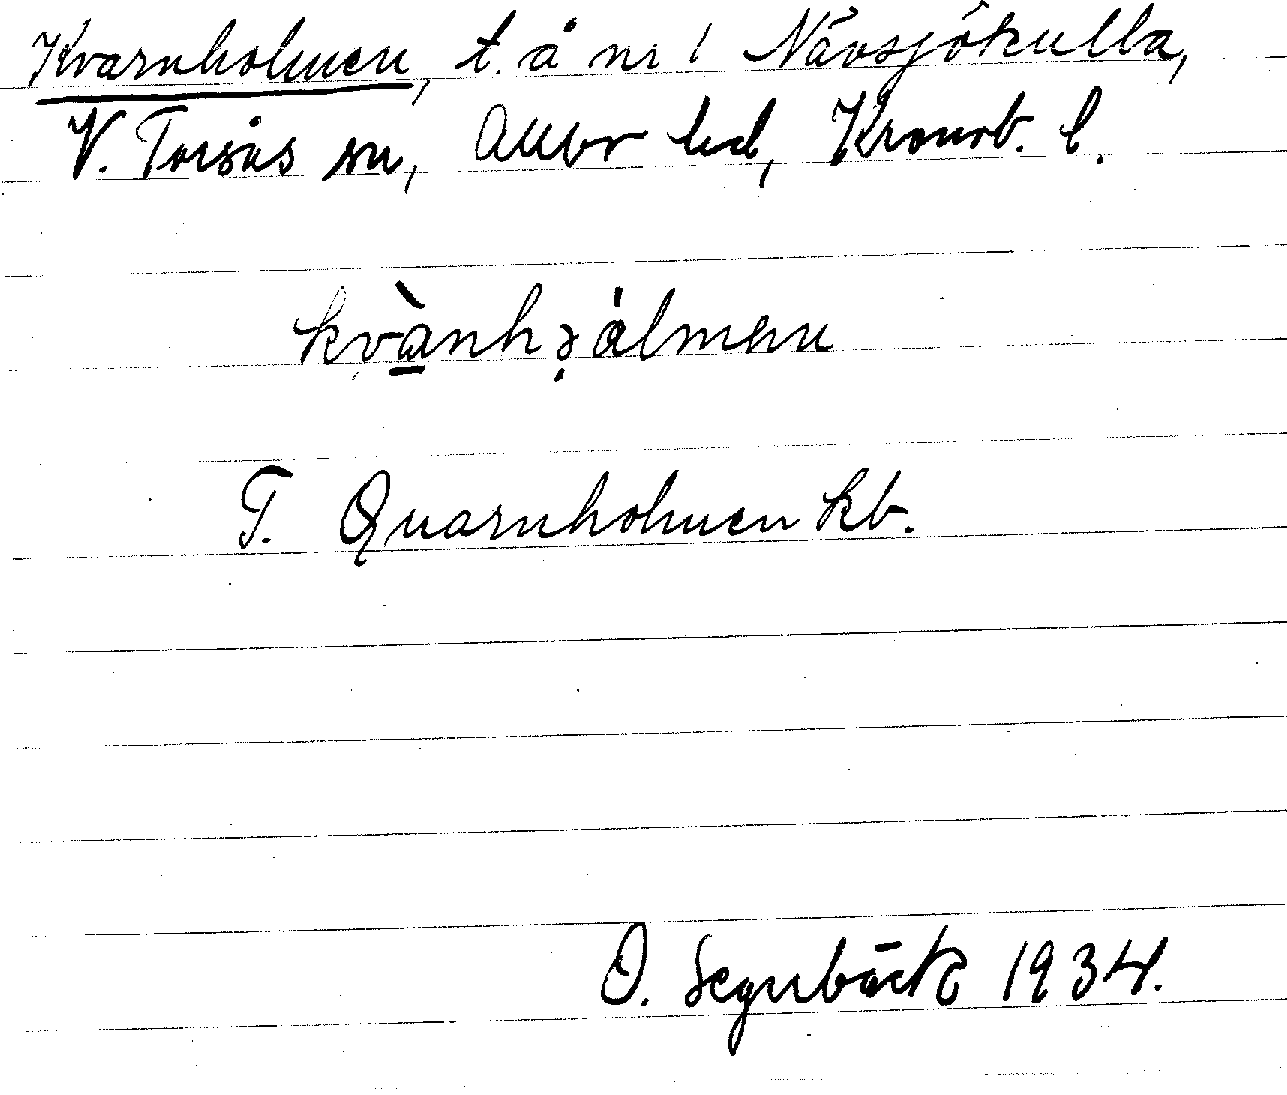 Kvarnholmen, t. å nr 1 Nävsjökulla,
V. Torsås sn, Allbo hd, Kronob. l.
kvànhɔ̣álmen
F. Quarnholmen kb.
O. Segnbäck 1934.